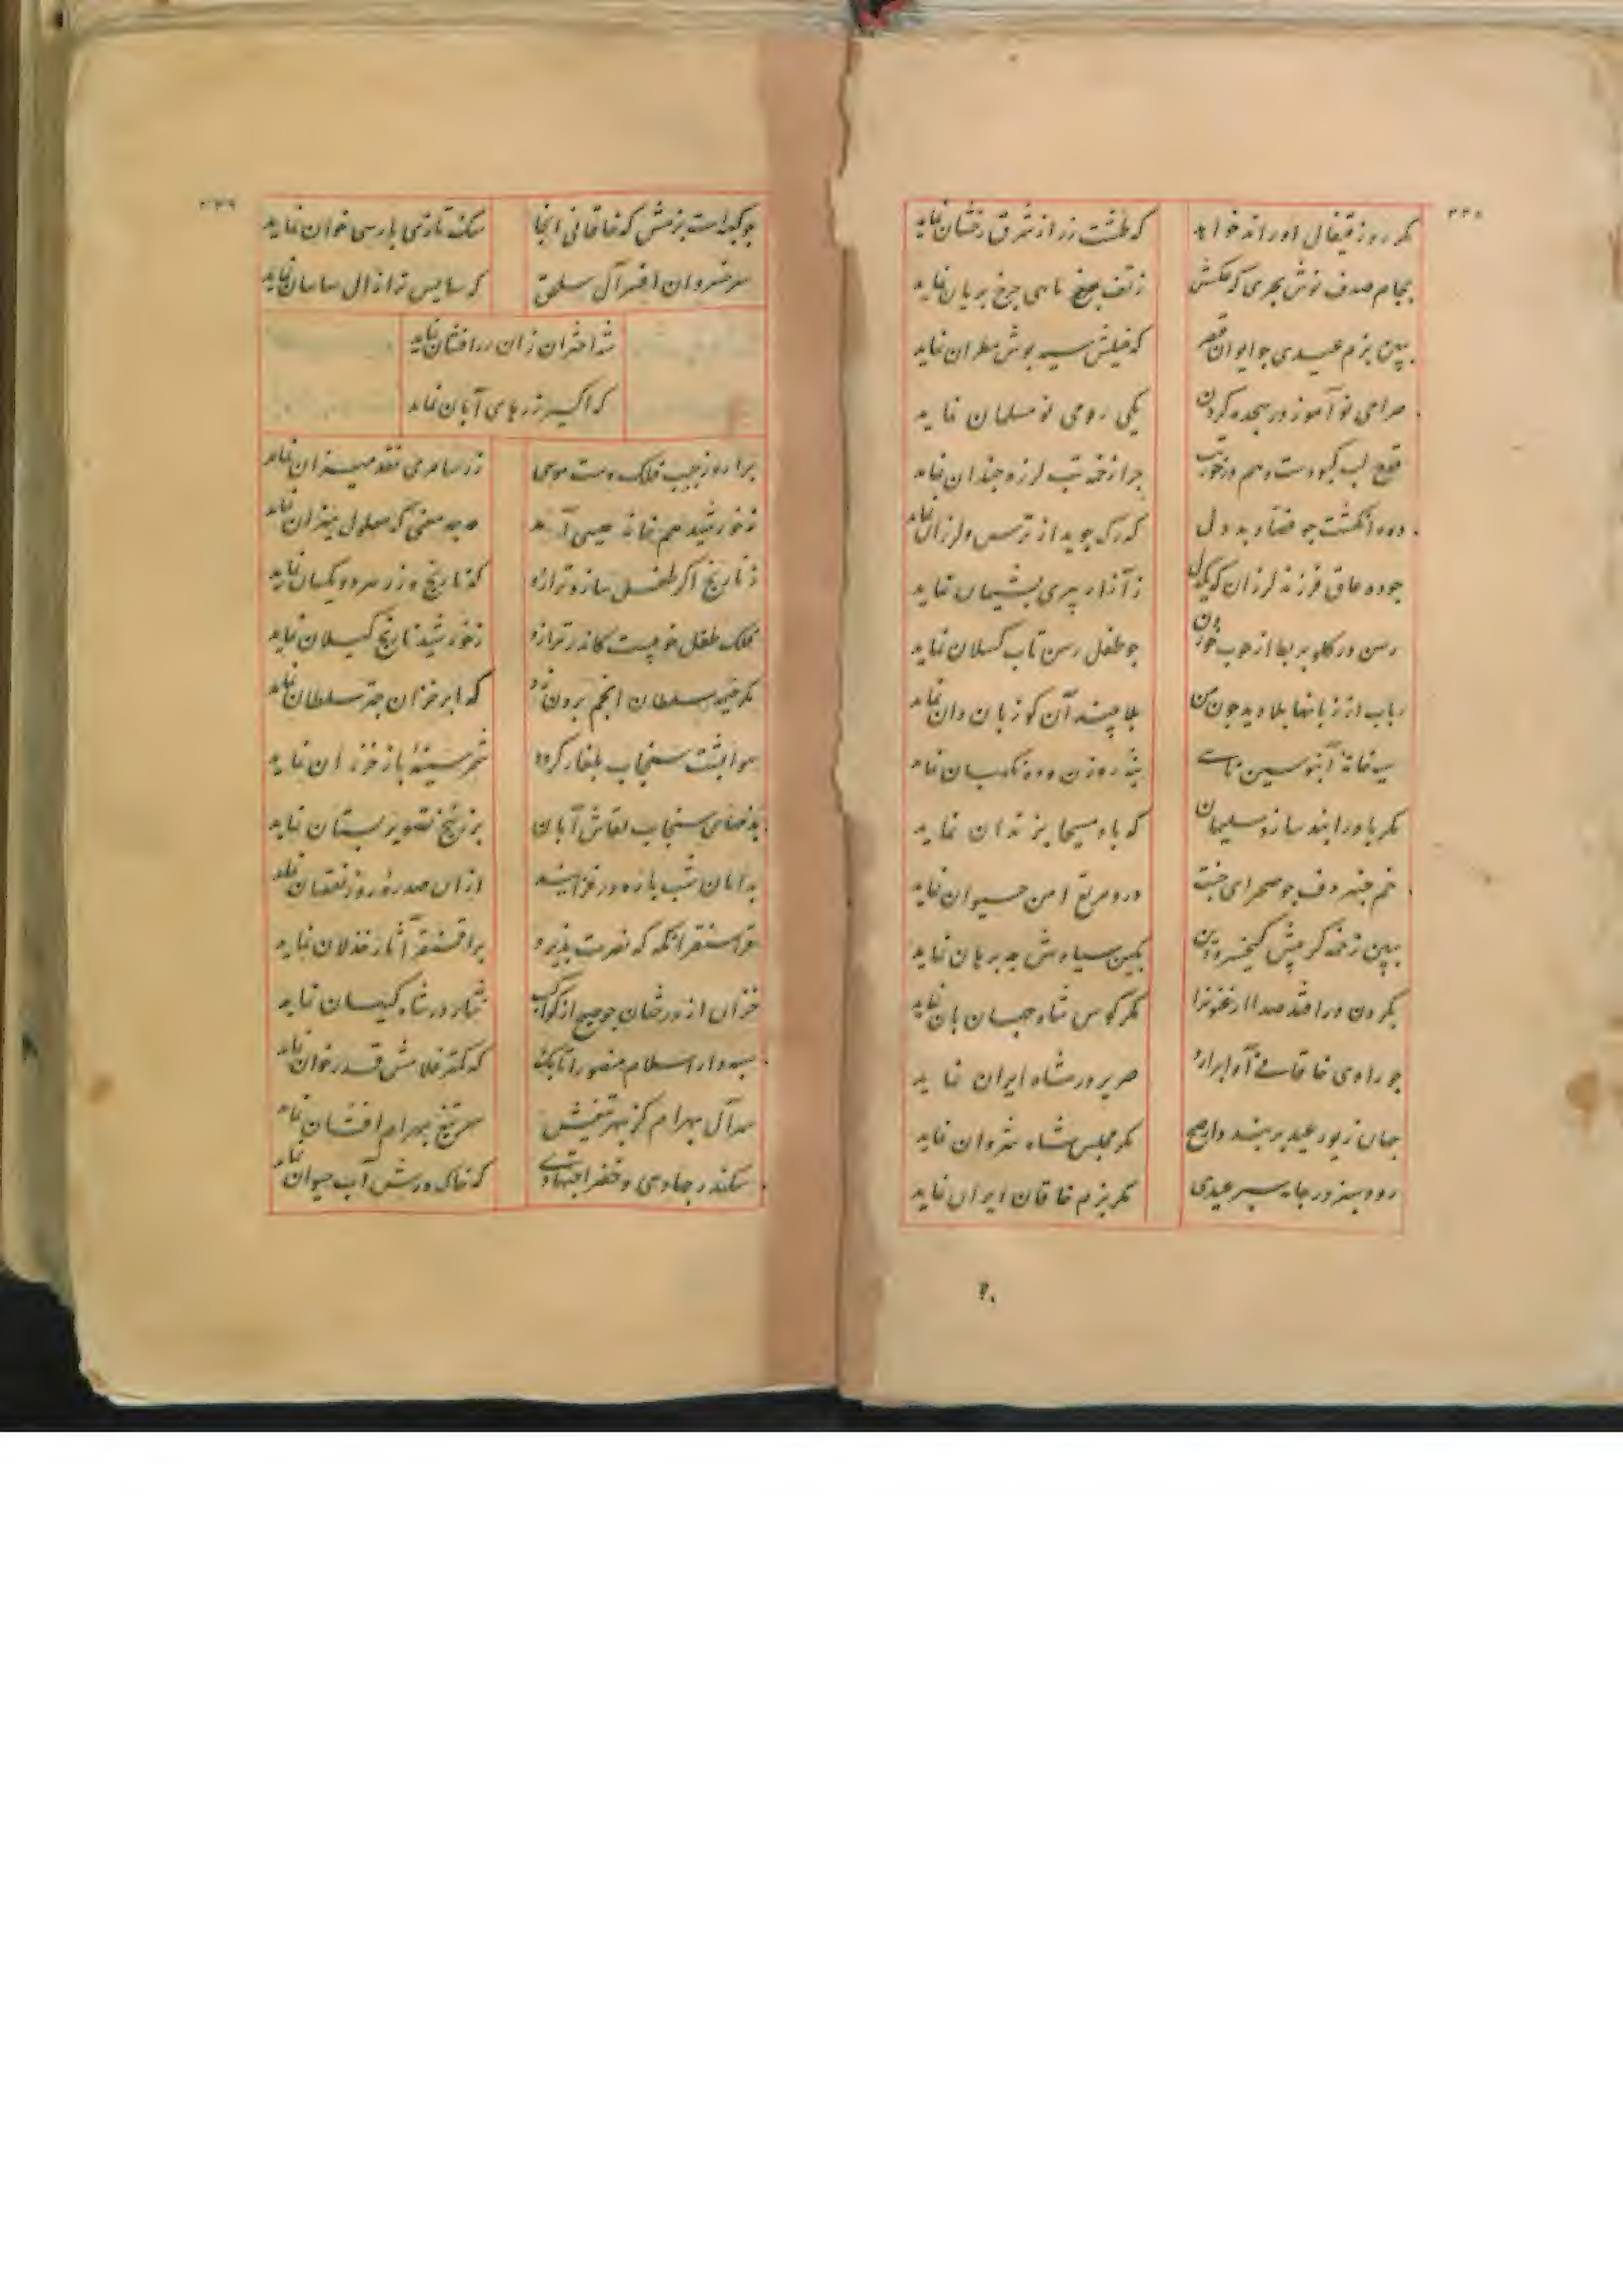 ۲۳۸
مگر روز قیفال او راند خواهد که طشت زر از شرق رخشان نماید
بجام صدف نوش بحری که عکسش ز تف ماهی چرخ بریان نماید
ببین بزم عیدی چو ایوان قیصر که سیه پوش مطران نماید
صراحی نو آموز در سجده کردن یکی رومی نو مسلمان نماید
قدح لب کبودست و هم در خوی تب چرا زخمه تب لرزه چندان نماید
ده انگشت چو فصاد بد دل که رگ جوید از ترس و لرزان نماید
چو ده عاق فرزند لرزان که هر یک ز آزار پیری پشیمان نماید
رسن در گلو بربط از چوب خوردن چو طفل رسن تاب کسلان نماید
رباب از زبانها بلا دیده چون من بلا بیند آن کو زبان دان نماید
سیه خانه آبنوسین نایی بنه روزن و ده نگهبان نماید
مگر باد را بند سازد سلیمان که باد مسیحا بزندان نماید
خم چنبر دف چو صحرای جنت درو مرتع امن حیوان نماید
ببین زخمه کز پیش کیخسرو دین بکین سیاوش چه برهان نماید
بگردون در افتد صدا ارغنون را مگر کوس شاه جهان بان نماید
چو راوی خاقانی آوا برآرد صریر در شاه ایران نماید
جهان زیور عید بربندد ار صبح مگر مجلس شاه شروان نماید
رود سبز در جامه عیدی مگر بزم خاقان ایران نماید
۲۳۹
چو کعبه است بزمش که خاقانی آنجا سگ تازی پارسی خوان نماید
سر خسروان افسر آل سلجق که سایس تر از آل ساسان نماید
شه اختران زان زر افشان نماید
که اکسیر زرهای آبان نماید
برآرد ز جیب فلک دست موسی زر سامری نقد میزان نماید
ز خورشید هم خانه عیسی آمد چه معنی که معلول میزان نماید
ز نارنج اگر طفل سازد ترازو که نارنج و زر هر دو یکسان نماید
فلک طفل خوییست کاندر ترازو ز خورشید نارنج گیلان نماید
مگر خیمه سلطان انجم برون زد که ابر خزان چتر سلطان نماید
هوا پشت سنجاب بلغار گردد شمر سینه باز خزران نماید
بفضای سنجاب نقاش آبان بزرنیخ تصویر بستان نماید
بدانان شب پاره در فزایند از آن صدره روز نقصان نماید
قراسنقر آنگه که نصرت پذیرد بر آقسنقر آثار خذلان نماید
خزان از درختان چو صبح از کواکب نثار در شاه کیهان نماید
سپهدار اسلام منصور اتابک که کمتر غلامش قدر خوان نماید
سر آل بهرام کز بهر تیغش سر تیغ بهرام افسان نماید
سکندر جهادی و خضر اجتهادی که خاک درش آب حیوان نماید